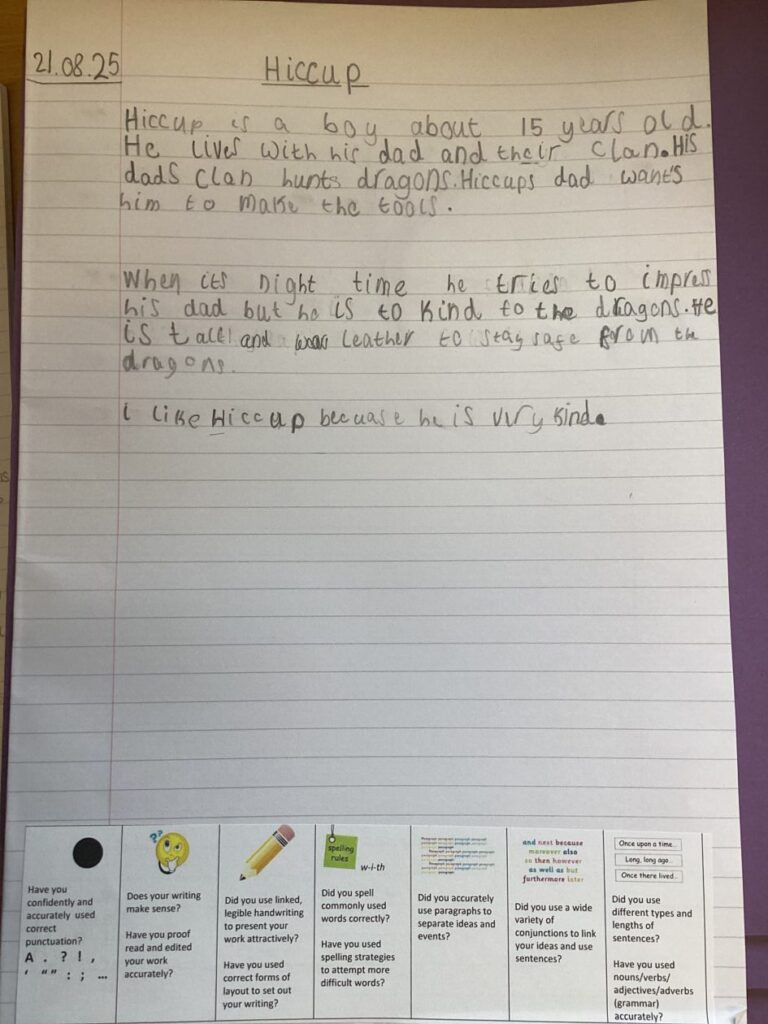 21.08.25
Hiccup
Hiccup is a boy about 15 years old.
He lives with his dad and their clan. His
dads clan hunts dragons. Hiccups dad want's
him to make the tools.
When its night time he tries to impress
his dad but he is to kind to the dragons. He
is tall and leather to stay safe from the
dragons.
i like Hiccup becuase he is very kind.
Have you
confidently and
accurately used
correct
punctuation?
A . ? ! ,
‘ “” : ; …
??
Does your writing
make sense?
Have you proof
read and edited
your work
accurately?
Did you use linked,
legible handwriting
to present your
work attractively?
Have you used
correct forms of
layout to set out
your writing?
spelling
rules
w-i-th
Did you spell
commonly used
words correctly?
Have you used
spelling strategies
to attempt more
difficult words?
Did you accurately
use paragraphs to
separate ideas and
events?
and next because
moreover also
so then however
as well as but
furthermore later
Did you use a wide
variety of
conjunctions to link
your ideas and use
sentences?
Once upon a time...
Long, long ago...
Once there lived...
Did you use
different types and
lengths of
sentences?
Have you used
nouns/verbs/
adjectives/adverbs
(grammar)
accurately?